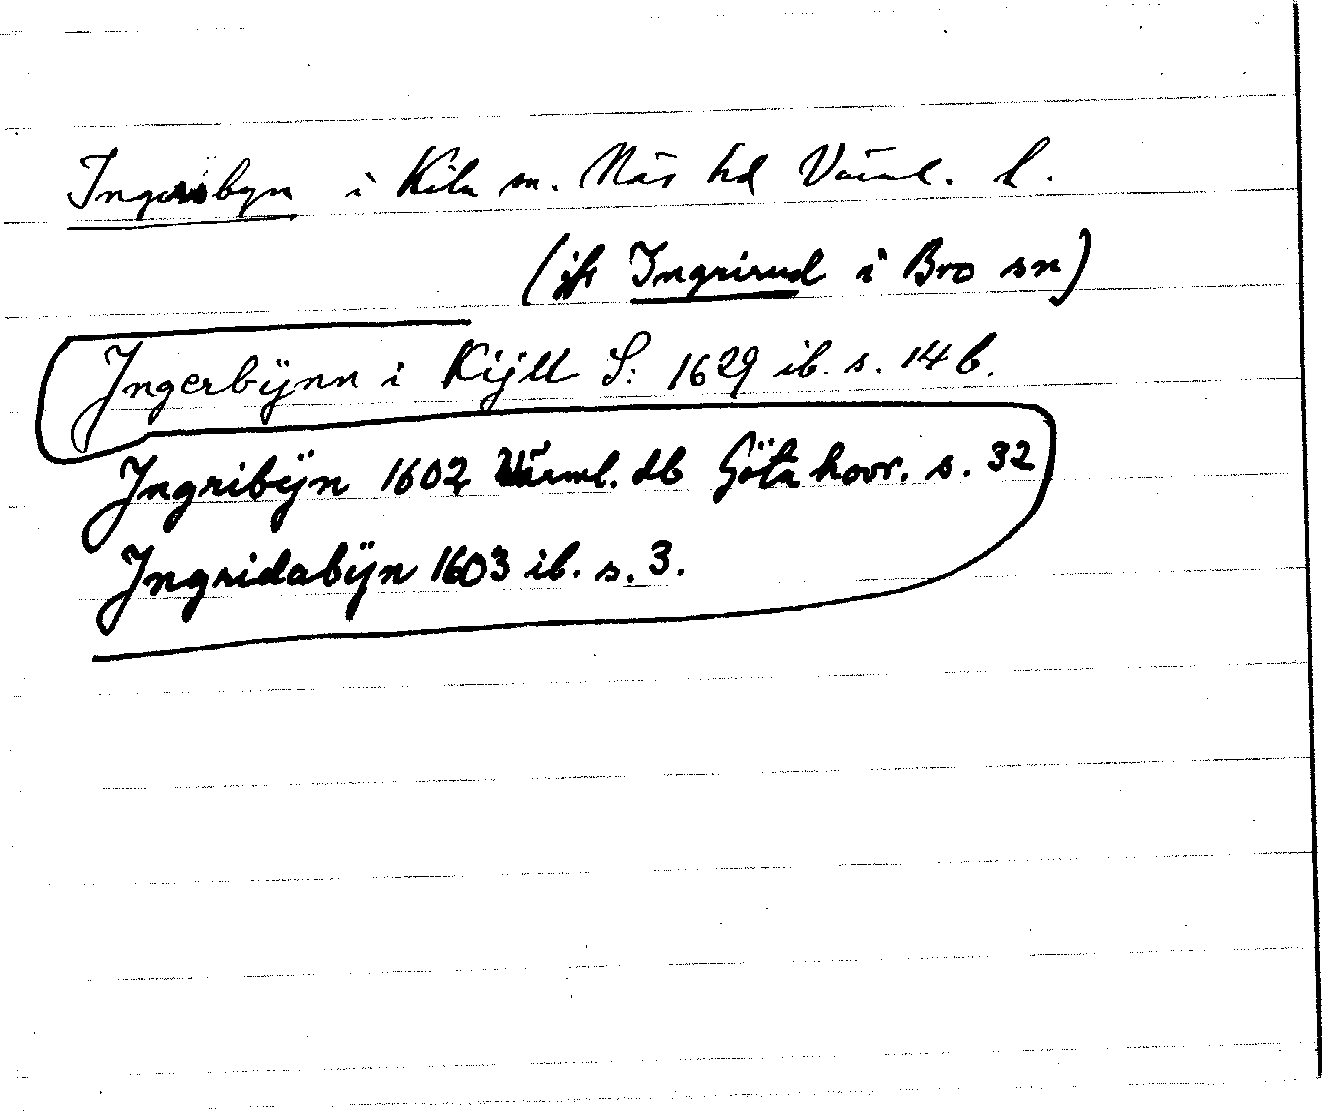 Ingersbyn i Kila sn. Näs hd Värml. l.
(jfr Ingrirud i Bro sn)
Jngerbÿnn i Kijll S: 1629 ib. s. 14 b.
Jngribÿn 1602 Värml. db Göta hovr. s. 32
Jngridabÿn 1603 ib. s. 3.